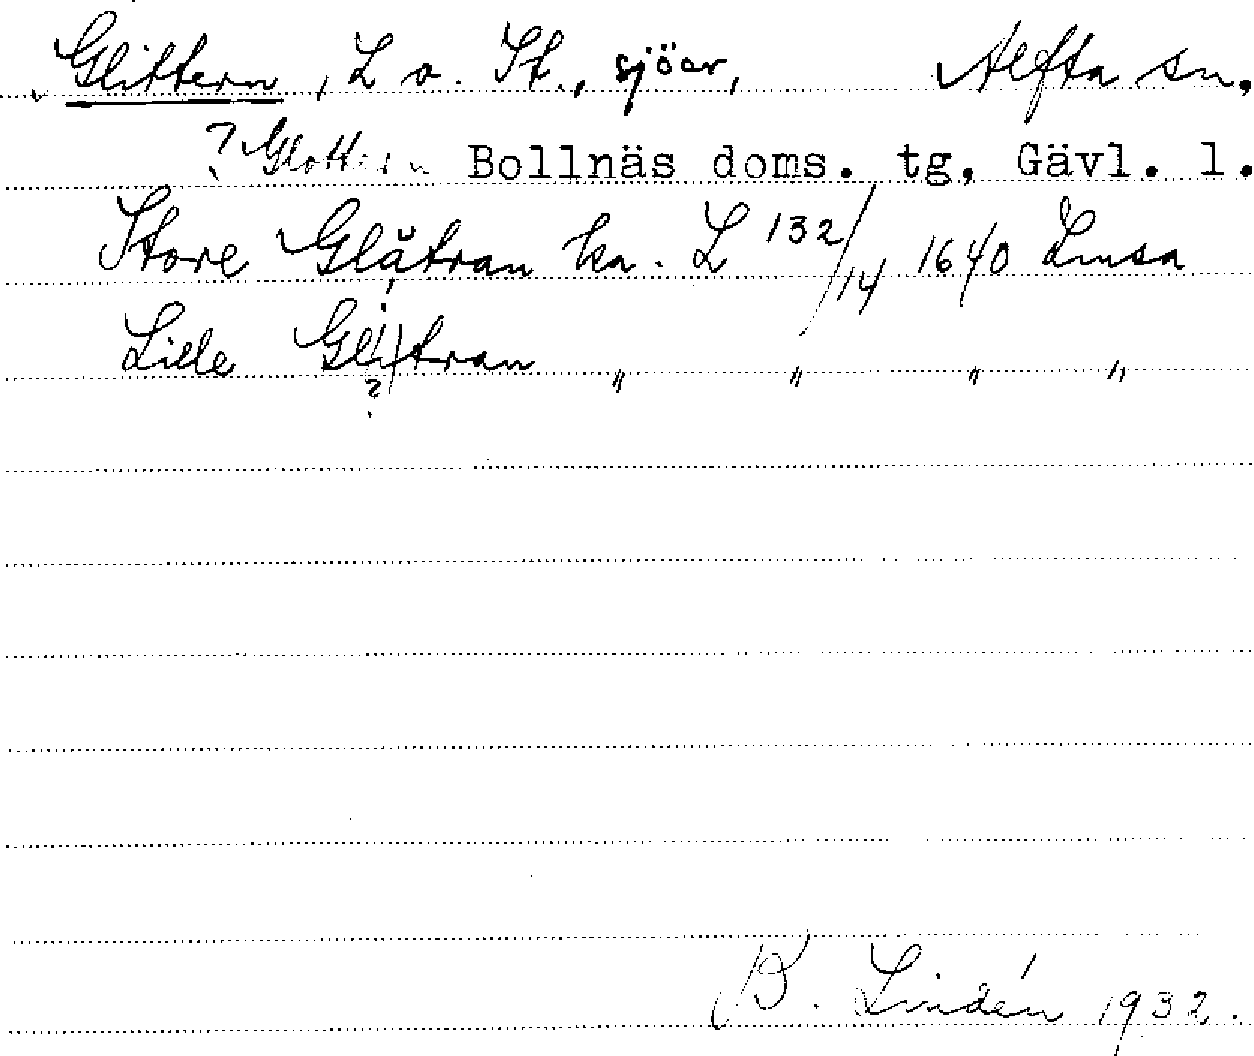 Glittern, L o. St., sjöar, Alfta sn.
? Glottern Bollnäs doms. tg. Gävl. l.
Store Glåtran ka. L 132/14 1640 Lmsa
Lille Glitran " " " "
?
B. Lindén 1932.